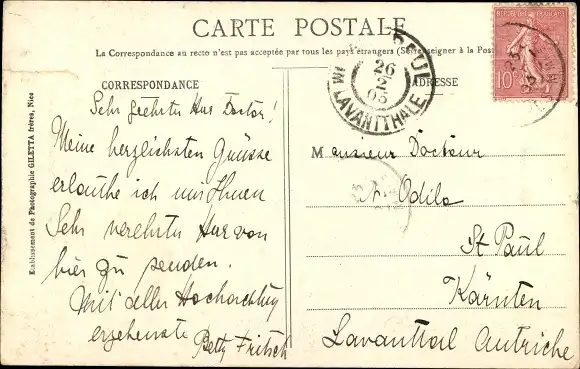 CARTE POSTALE
La Correspondance au recto n'est pas acceptée par tous les pays étrangers (Se renseigner à la Post
CORRESPONDANCE
ADRESSE
Sehr geehrter Herr Doctor!
Meine herzlichsten Grüsse
erlaube ich mir Ihnen
Sehr verehrter Herr von
hier zu senden.
Mit aller Hochachtung
ergebenste
Betty Fritsch
Monsieur Docteur
Odilo
St Paul
Kärnten
Lavanttal Autriche
Etablissement de Photographie GILETTA frères, Nice
PAUL
26
2
05
LAVANTTHALE
REPUBLIQUE FRANÇAISE
10